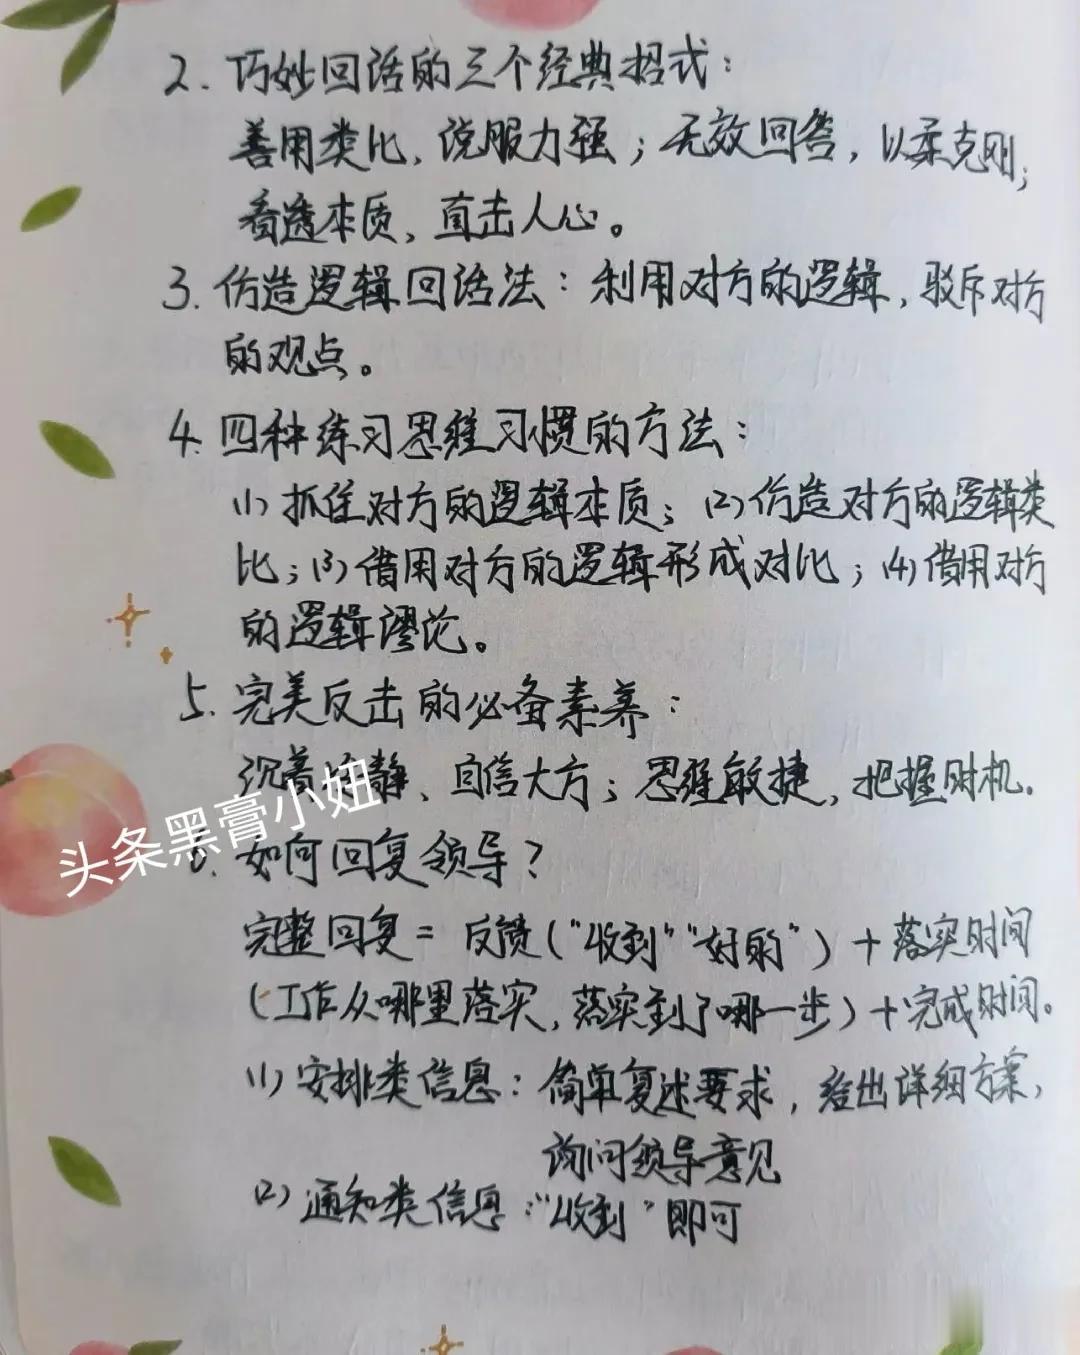 2. 巧妙回话的三个经典招式：
善用类比，说服力强；无效回答，以柔克刚；
看透本质，直击人心。
3. 仿造逻辑回话法：利用对方的逻辑，驳斥对方
的观点。
4. 四种练习思维习惯的方法：
(1) 抓住对方的逻辑本质；(2) 仿造对方的逻辑类
比；(3) 借用对方的逻辑形成对比；(4) 借用对方
的逻辑谬论。
5. 完美反击的必备素养：
沉着冷静、自信大方；思维敏捷，把握时机.
头条黑膏小妞
6. 如何回复领导？
完整回复 = 反馈（“收到”“好的”）+ 落实时间
（工作从哪里落实，落实到了哪一步）+ 完成时间。
(1) 安排类信息：简单复述要求，给出详细方案，
询问领导意见
(2) 通知类信息：“收到”即可